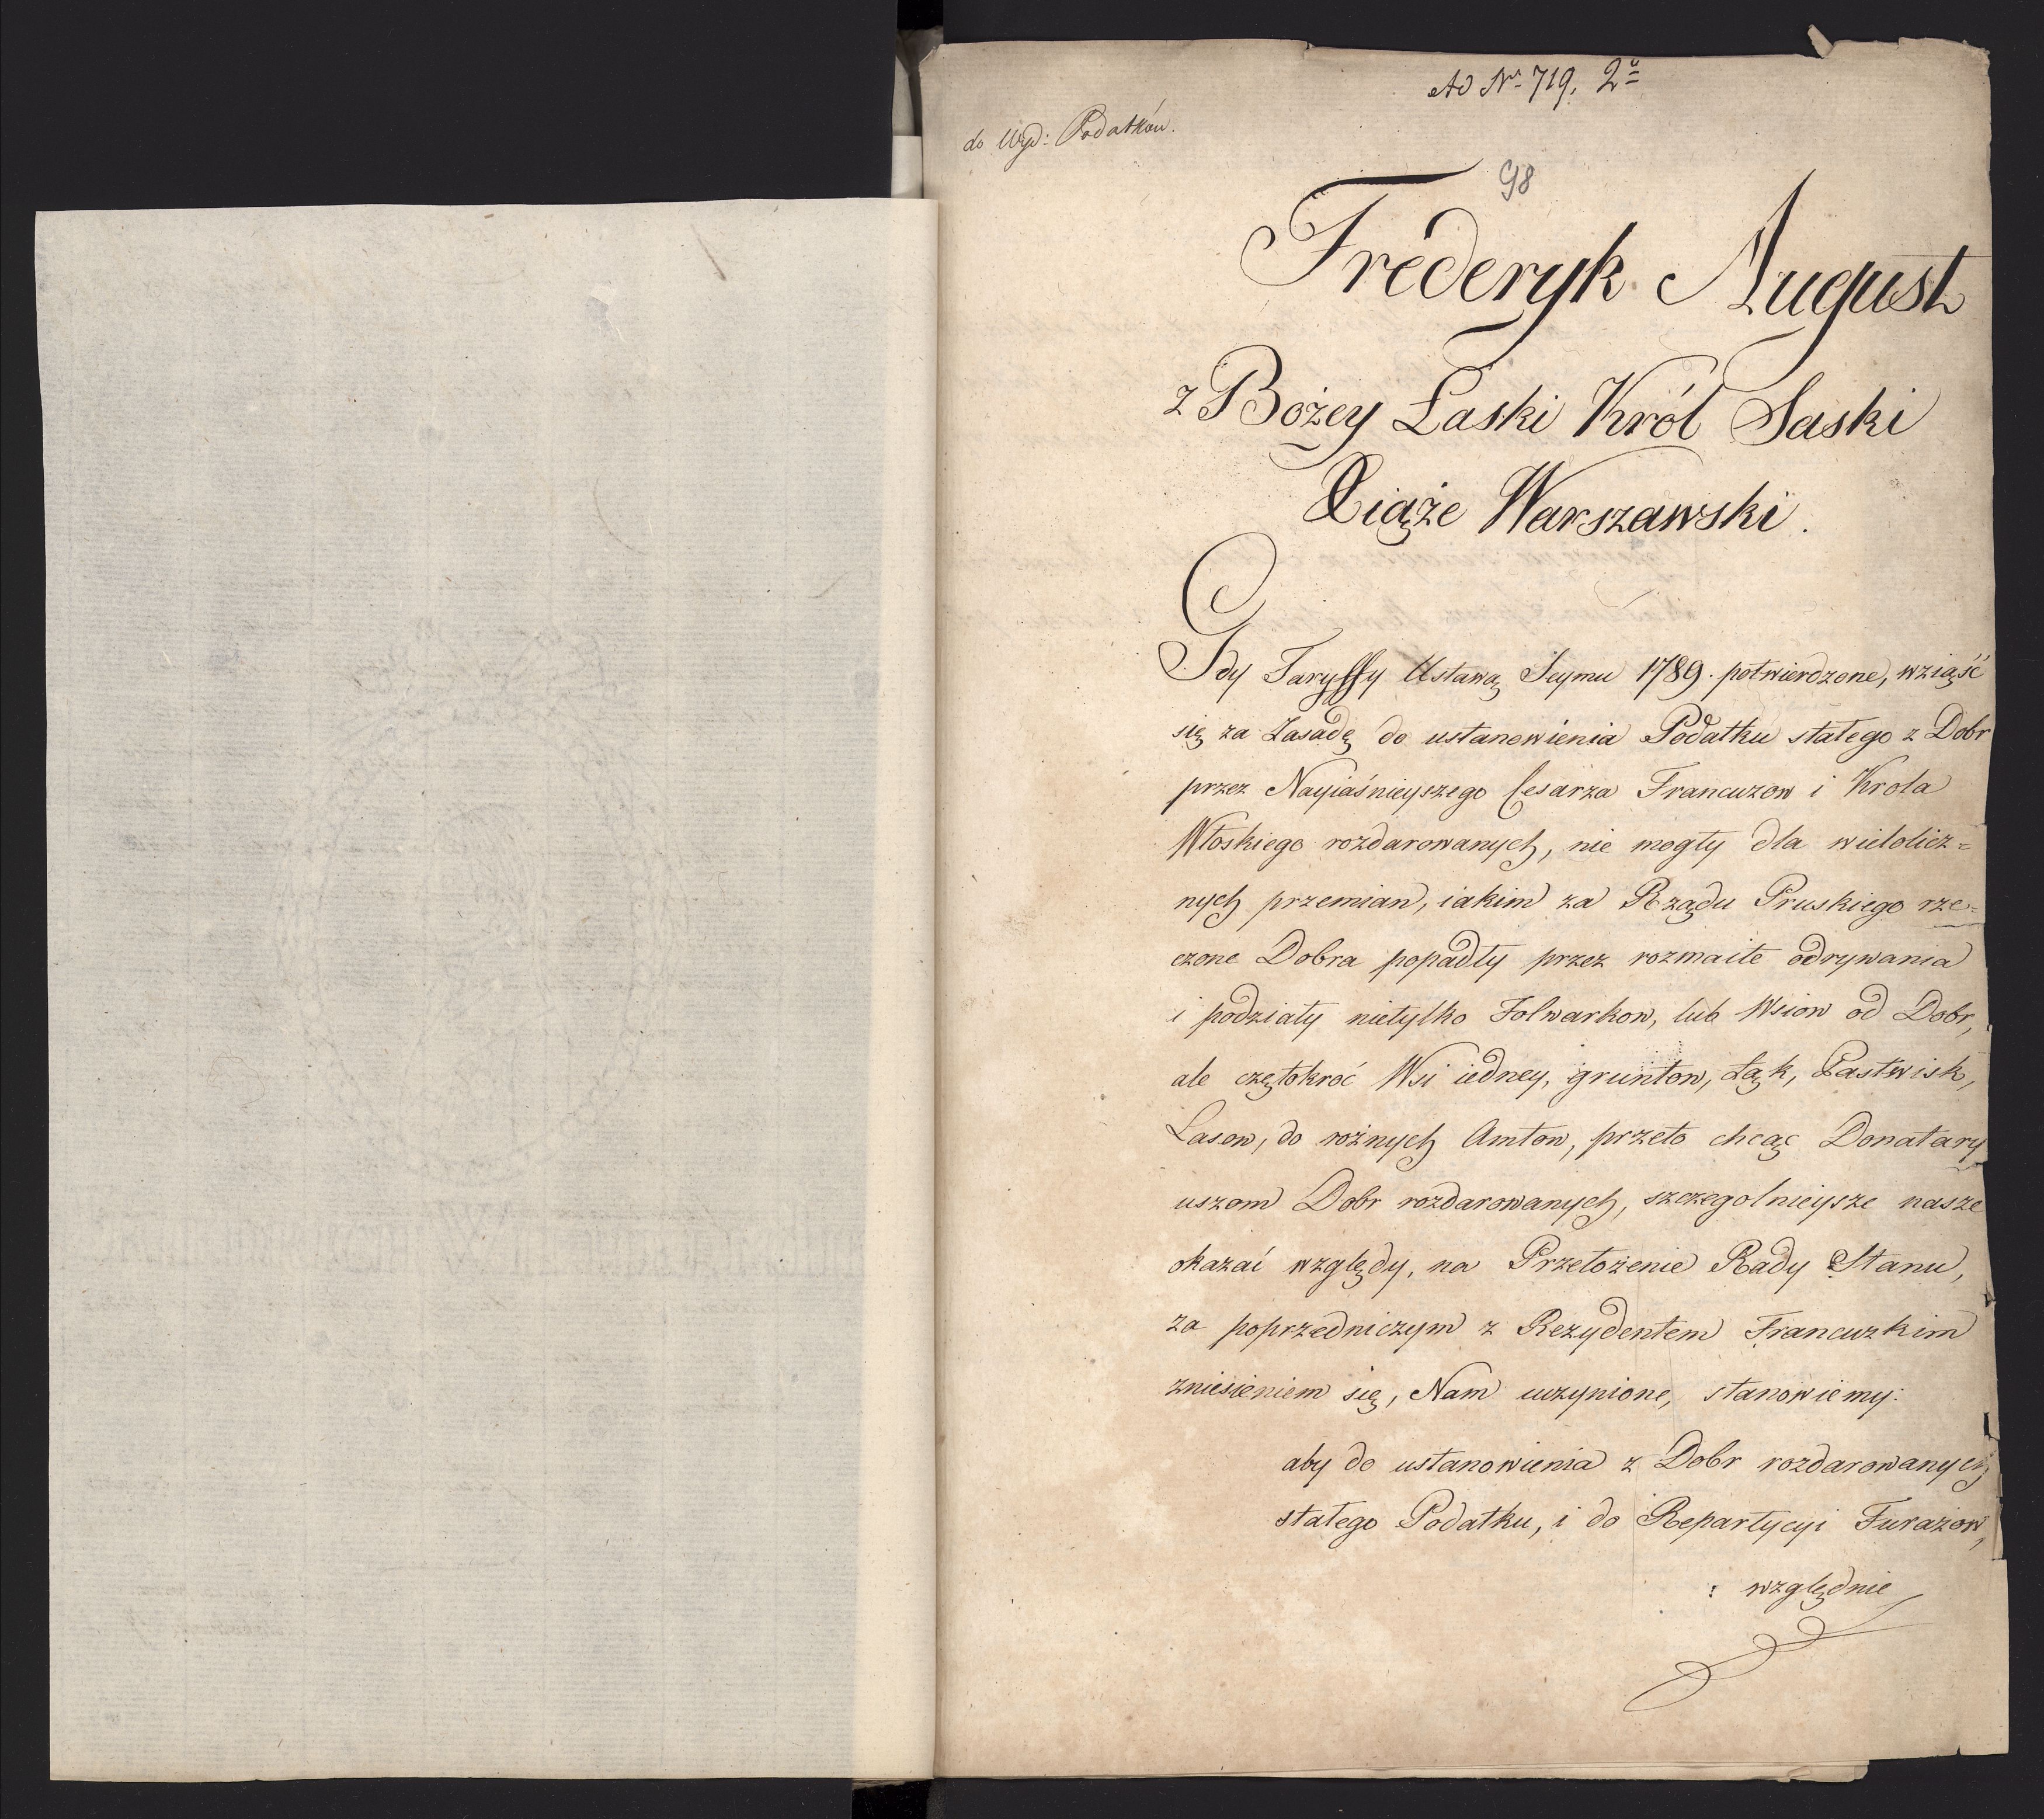 Ad Nr. 719. 2º
do Wyd: Podatków.
98
Frederyk August
z Bożey Łaski Król Saski
Xiąże Warszawski.
Gdy Taryffy Ustawą Seymu 1789. potwierdzone, wziąść
się za Zasadę do ustanowienia Podatku stałego z Dobr
przez Nayiaśnieyszego Cesarza Francuzow i Krola
Włoskiego rozdarowanych, nie mogły dla wielolicz=
nych przemian, iakim za Rządu Pruskiego rze=
czone Dobra popadły przez rozmaite odrywania
i podziały nietylko Folwarkow, lub Wsiow od Dobr,
ale częstokroć Wsi iedney, gruntow, Łąk, Pastwisk,
Lasow, do rożnych Amtow, przeto chcąc Donatary
uszom Dobr rozdarowanych, szczegolnieysze nasze
okazać względy, na Przełożenie Rady Stanu,
za poprzedniczym z Rezydentem Francuzkim
zniesieniem się, Nam uczynione, stanowiemy:
aby do ustanowienia z Dobr rozdarowanych
stałego Podatku, i do Repartycyi Furażow,
: względnie